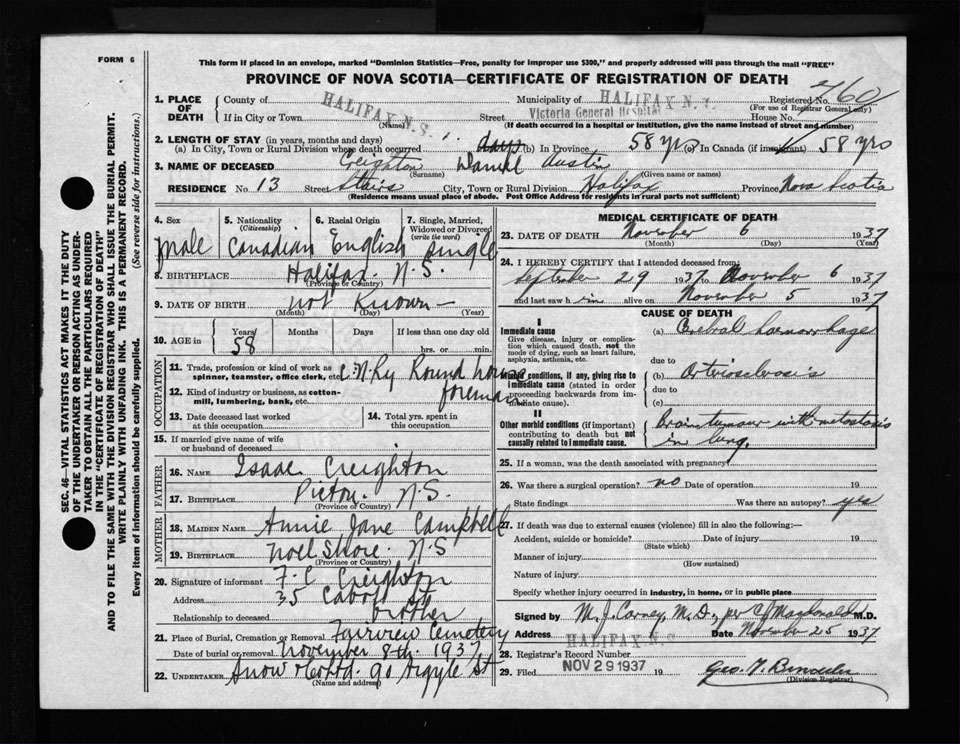 FORM 6
This form if placed in an envelope, marked "Dominion Statistics—Free, penalty for improper use $300," and properly addressed will pass through the mail "FREE"
PROVINCE OF NOVA SCOTIA—CERTIFICATE OF REGISTRATION OF DEATH
SEC. 46—VITAL STATISTICS ACT MAKES IT THE DUTY
OF THE UNDERTAKER OR PERSON ACTING AS UNDERTAKER TO OBTAIN ALL THE PARTICULARS REQUIRED
IN THE "CERTIFICATE OF REGISTRATION OF DEATH"
AND TO FILE THE SAME WITH THE DIVISION REGISTRAR WHO SHALL ISSUE THE BURIAL PERMIT.
WRITE PLAINLY WITH UNFADING INK. THIS IS A PERMANENT RECORD.
Every item of information should be carefully supplied. (See reverse side for instructions.)
1. PLACE OF DEATH
County of HALIFAX N.S. Municipality of HALIFAX N.S. Registered No. 460
(For use of Registrar General only)
If in City or Town (Name) Street Victoria General Hospital House No.
(If death occurred in a hospital or institution, give the name instead of street and number)
2. LENGTH OF STAY (in years, months and days)
(a) In City, Town or Rural Division where death occurred days (b) In Province 58 yrs (c) In Canada (if immigrant) 58 yrs
3. NAME OF DECEASED Creighton Daniel Austin
(Surname) (Given name or names)
RESIDENCE No. 13 Street Stairs City, Town or Rural Division Halifax Province Nova Scotia
(Residence means usual place of abode. Post Office Address for residents in rural parts not sufficient)
4. Sex Male
5. Nationality (Citizenship) Canadian
6. Racial Origin English
7. Single, Married, Widowed or Divorced (write the word) Single
8. BIRTHPLACE Halifax N.S.
(Province or Country)
9. DATE OF BIRTH not Known
(Month) (Day) (Year)
10. AGE in Years 58 Months Days If less than one day old hrs. or min.
OCCUPATION
11. Trade, profession or kind of work as spinner, teamster, office clerk, etc. C.N.Ry Round house foreman
12. Kind of industry or business, as cotton-mill, lumbering, bank, etc.
13. Date deceased last worked at this occupation
14. Total yrs. spent in this occupation
15. If married give name of wife or husband of deceased
FATHER
16. NAME Isaac Creighton
17. BIRTHPLACE Pictou. N.S.
(Province or Country)
MOTHER
18. MAIDEN NAME Annie Jane Campbell
19. BIRTHPLACE Noel Shore. N.S
(Province or Country)
20. Signature of informant F. C Creighton
Address 35 Cabot St
Relationship to deceased brother
21. Place of Burial, Cremation or Removal Fairview Cemetery
Date of burial or removal November 8th. 1937
22. UNDERTAKER Snow & Co Ltd. 90 Argyle St
(Name and address)
MEDICAL CERTIFICATE OF DEATH
23. DATE OF DEATH November 6 1937
(Month) (Day) (Year)
24. I HEREBY CERTIFY that I attended deceased from
September 29 1937 to November 6 1937
and last saw him alive on November 5 1937
CAUSE OF DEATH
I
Immediate cause
Give disease, injury or complication which caused death, not the mode of dying, such as heart failure, asphyxia, asthenia, etc.
(a) Cerebral haemorrhage
due to
Morbid conditions, if any, giving rise to immediate cause (stated in order proceeding backwards from immediate cause).
(b) Arteriosclerosis
due to
(c)
II
Other morbid conditions (if important) contributing to death but not causally related to immediate cause.
Brain tumour with metastasis in lung.
25. If a woman, was the death associated with pregnancy?
26. Was there a surgical operation? no Date of operation 19
State findings Was there an autopsy? yes
27. If death was due to external causes (violence) fill in also the following:—
Accident, suicide or homicide? Date of injury 19
(State which)
Manner of injury
(How sustained)
Nature of injury
Specify whether injury occurred in industry, in home, or in public place
Signed by M. J. Carney, M.D., per Macdonald M.D.
Address HALIFAX N.S. Date November 25 1937
28. Registrar's Record Number
29. Filed NOV 29 1937 19 Geo.
(Division Registrar)